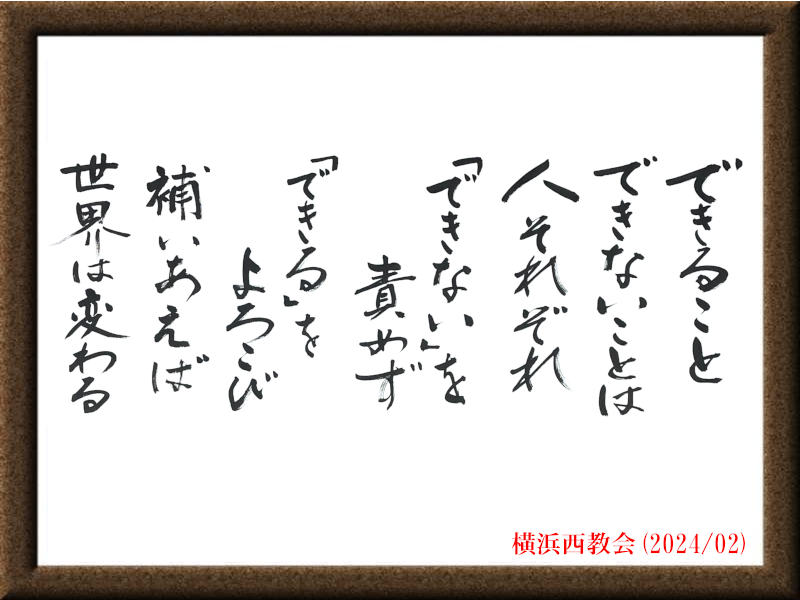 できること
できないことは
人それぞれ
「できない」を
責めず
「できる」を
よろこび
補いあえば
世界は変わる
横浜西教会 (2024/02)